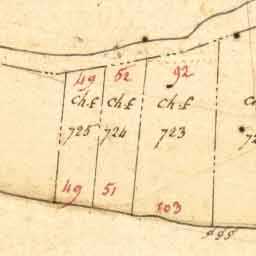 49 52 92
ch.f ch.f ch.f
725 724 723
49 51 103